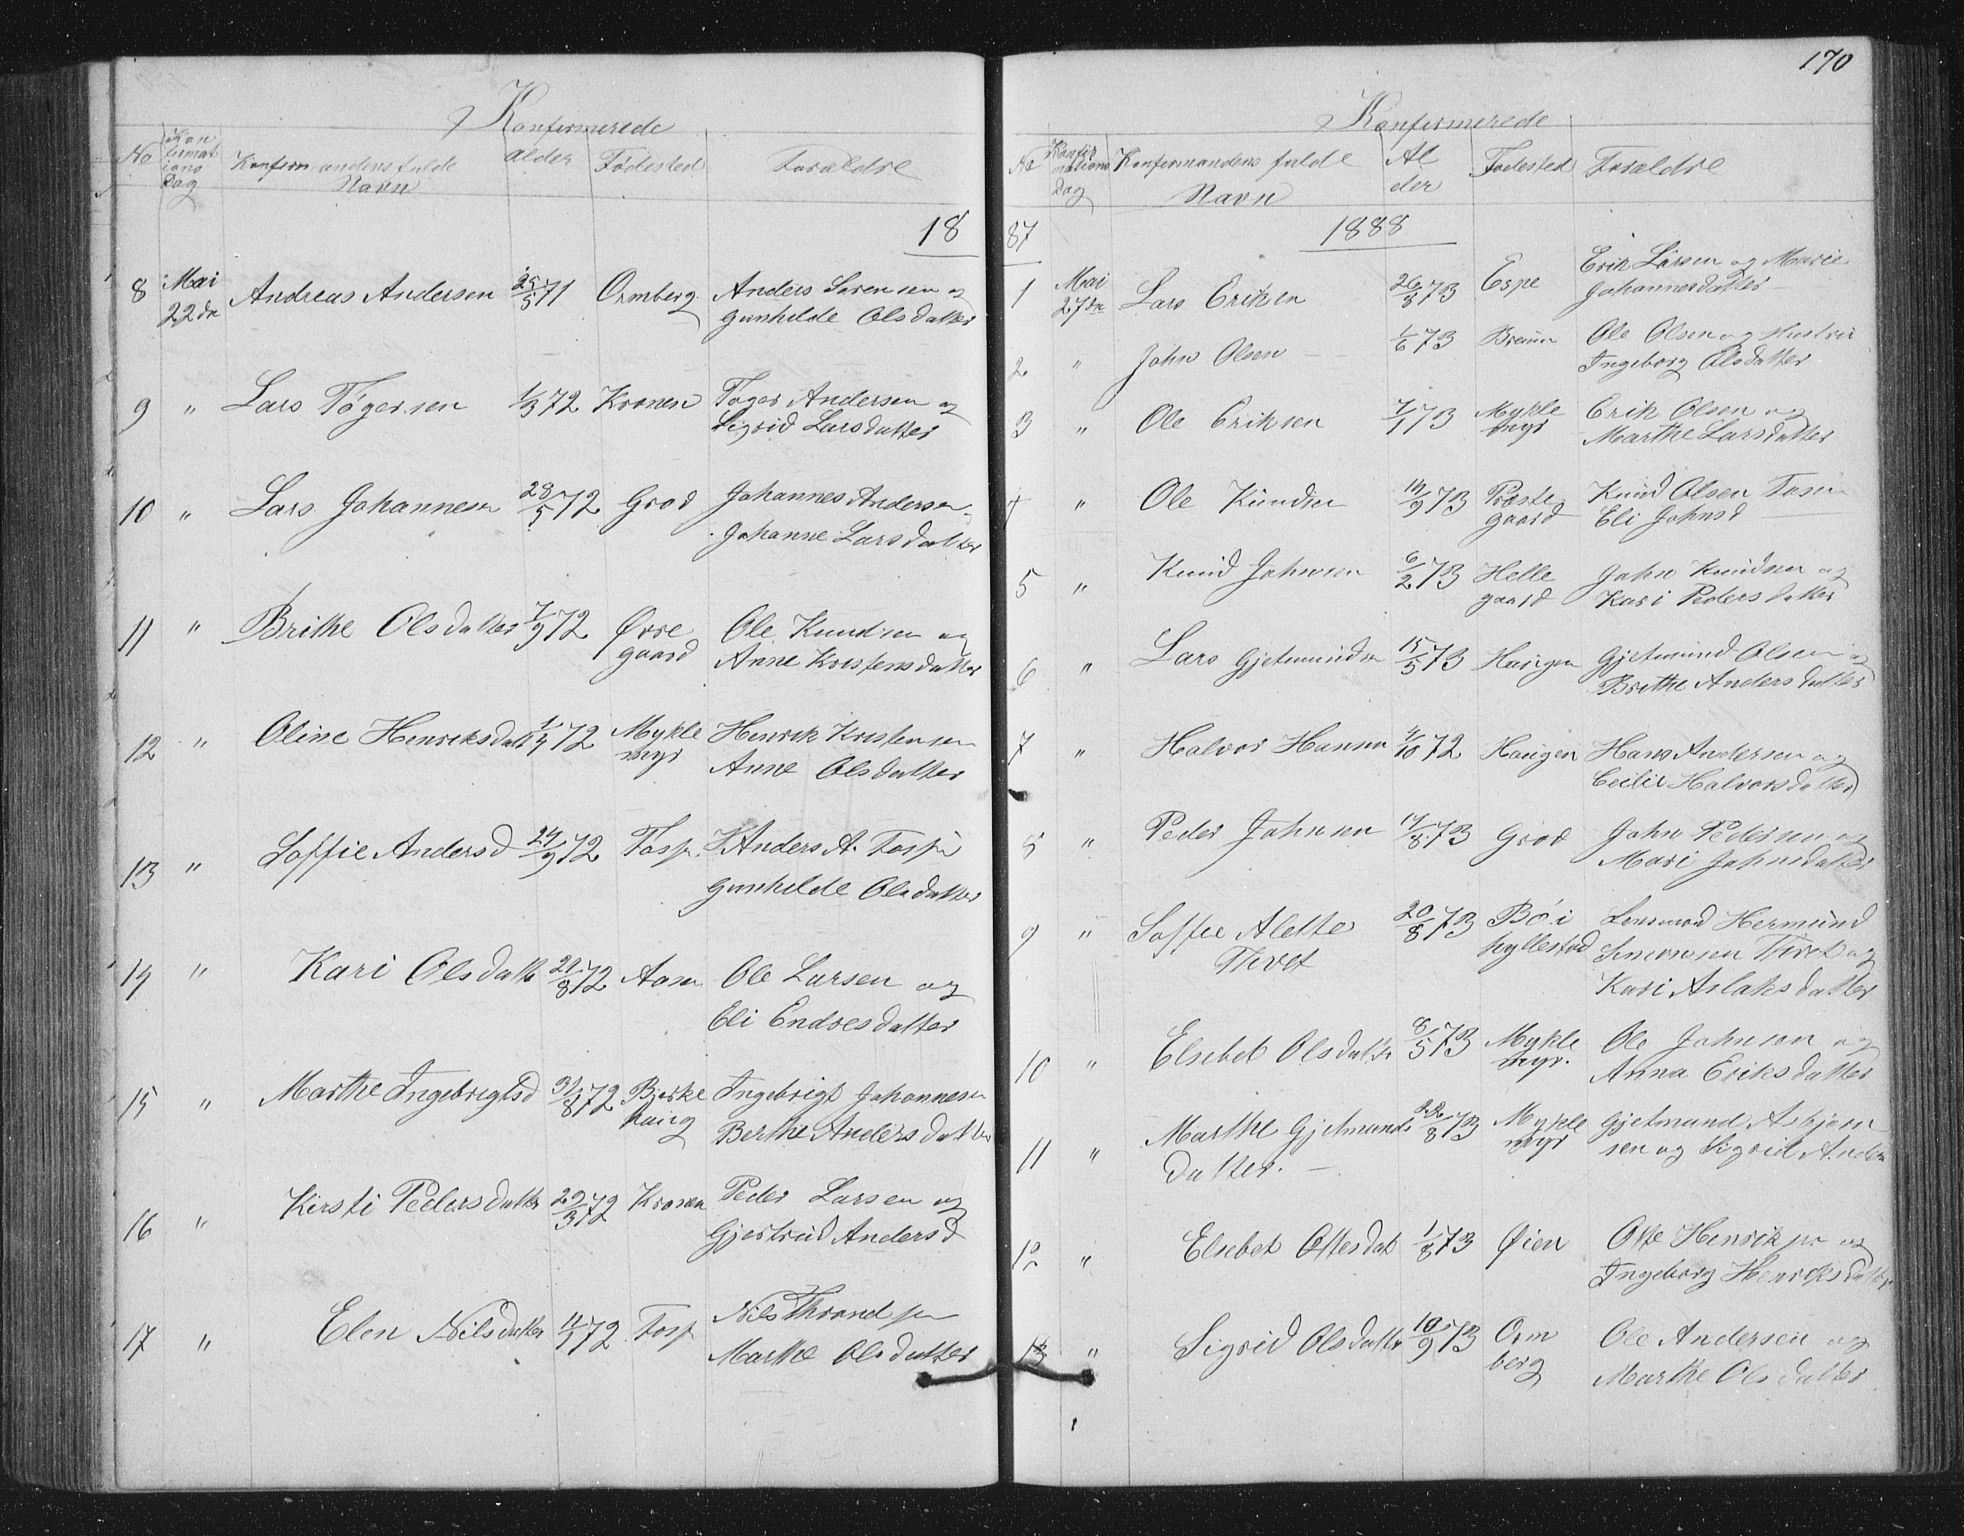 Konfirmerede
No
Kon
firmat
ions
Dag
Konfirmandens fulde
Navn
alder
Fødested
Forældre
18
8 Mai 22de Andreas Andersen 25/5 71 Ormberg Anders Sørensen og
Gunhilde Olsdatter
9 " Lars Tøgersen 1/3 72 Kronen Tøger Andersen og
Sigrid Larsdatter
10 " Lars Johannesen 28/5 72 Grov Johannes Andersen
Johanne Larsdatter
11 " Brithe Olsdatter 7/9 72 Øvre Ole Knudsen og
gaard Anne Kristensdatter
12 " Oline Henriksdatt 1/4 72 Mykle Henrik Kristensen
myr Anne Olsdatter
13 " Soffie Andersd 24/9 72 Foss Anders A. Foss
Gunhilde Olsdatter
14 " Kari Olsdatt 21/8 72 Aasen Ole Larsen og
Eli Endresdatter
15 " Marthe Ingebrigtsd 31/8 72 Bjerke Ingebrigt Johannesen
haug Berthe Andersdatter
16 " Kirsti Pedersdatter 29/3 72 Kronen Peder Larsen og
Gjertrud Andersd
17 " Elen Nilsdatter 11/1 72 Foss Nils Thrandsen
Marthe Olsdatter
170
Konfirmerede
No
Konfir
mations
Dag
Konfirmandens fulde
Navn
Al
der
Fødested
Forældre
87 1888
1 Mai 27de Lars Eriksen 26/8 73 Espe Erik Larsen og Marie
Johannesdatter
2 " John Olsen 1/6 73 Ole Olsen og Hustru
Ingeborg Olsdatter
3 " Ole Eriksen 7/1 73 Mykle Erik Olsen og
myr Marthe Larsdatter
4 " Ole Knudsen 14/9 73 Præste Knud Olsen
gaard Eli Johnsd
5 " Knud Johnsen 6/2 73 Helle John Knudsen og
gaard Kari Pedersdatter
6 " Lars Gjetmundsen 15/5 73 Haugen Gjetmund Olsen og
Brithe Andersdatter
7 " Halvor Hansen 4/10 72 Haugen Hans Andersen og
Cecilie Halvorsdatter
8 " Peder Johnsen 14/8 73 Grov John Pedersen og
Mari Johnsdatter
9 " Soffie Alette 20/8 73 Bøi Lensmand Hermund
Tivet hyllestad Simonsen Tivet og
Kari Aslaksdatter
10 " Elsebet Olsdatter 8/5 73 Mykle Ole Johnson og
myr. Anna Eriksdatter
11 " Marthe Gjetmunds 22/8 73 Mykle Gjetmund Asbjørn
datter. myr sen og Sigrid Anders
12 " Elsebet Ottesdat 1/8 73 Øien Otte Henriksen og
Ingeborg Henriksdatter
13 " Sigrid Olsdatter 10/9 73 Orm Ole Andersen og
berg Marthe Olsdatter